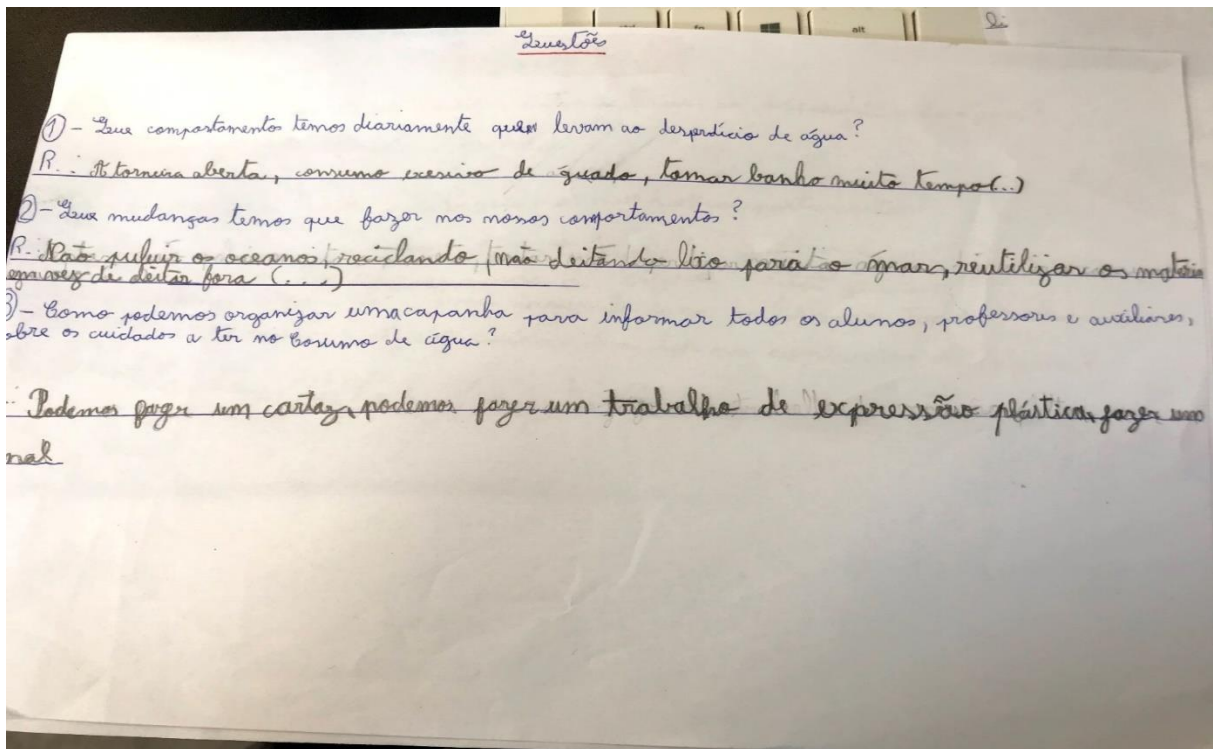 alt
Questões
① - Que compostamentos temos diariamente que levam ao desperdício de água?
R.: A torneira aberta, consumo exesivo de guado, tomar banho muito tempo(..)
②- Que mudanças temos que fazer nos nossos comportamentos?
R. Não puluir os oceanos, reciclando, não deitando lixo para o mar, reutilizar os materia
em vez de deitar fora (...)
3)- Como podemos organizar uma capanha para informar todos os alunos, professores e auxiliares,
obre os cuidados a ter no Corumo de água?
.. Podemos fazer um cartaz, podemos fazer um trabalho de expressão plástica, fazer um
nal